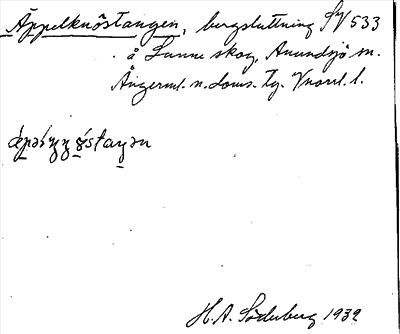 Äppelknöstangen, bergsluttning SV 533
å Lunne skog, Anundsjö sn.
Ångerml. n. doms. Tg. Vnorrl. l.
H. A. Söderberg 1932